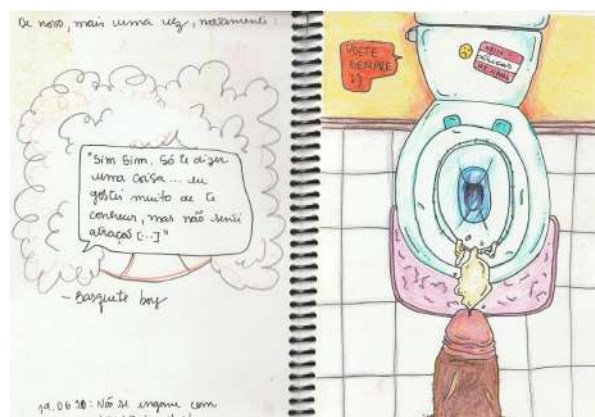 De novo, mais uma vez, novamente:
"Sim Sim. Só te dizer
uma coisa... eu
gostei muito de te
conhecer, mas não senti
atração [...]"
- Basquete boy
19.06.20: Não se engane com
VOLTE
SEMPRE
:)